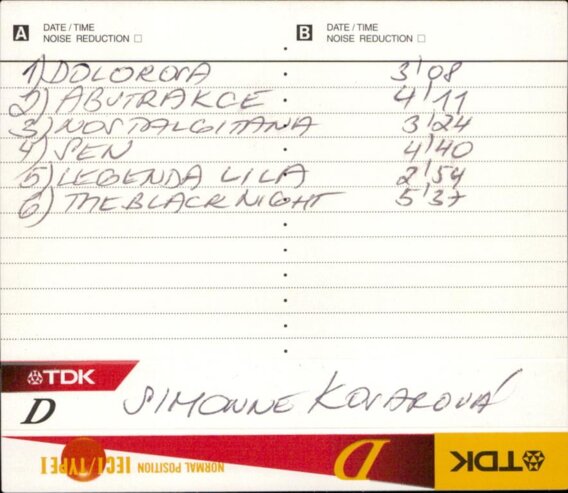 A DATE / TIME NOISE REDUCTION B DATE / TIME NOISE REDUCTION
1) DOLOROSA 3'08
2) ABSTRAKCE 4'11
3) NOSTALGITANA 3'24
4) SEN 4'40
5) LEGENDA LILA 2'54
6) THE BLACK NIGHT 5'37
TDK
D SIMONNE KOVAROVÁ
NORMAL POSITION IECI/TYPE I D TDK